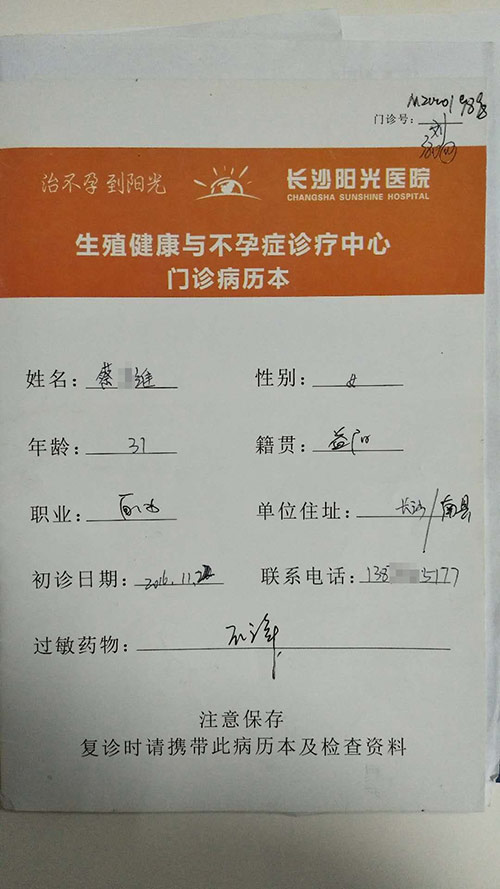 门诊号：
治不孕到阳光 长沙阳光医院
CHANGSHA SUNSHINE HOSPITAL
生殖健康与不孕症诊疗中心
门诊病历本
姓名：蔡 维 性别：女
年龄：31 籍贯：益阳
职业： 单位住址：长沙/南县
初诊日期：2016.11.2 联系电话：138 5177
过敏药物：不详
注意保存
复诊时请携带此病历本及检查资料